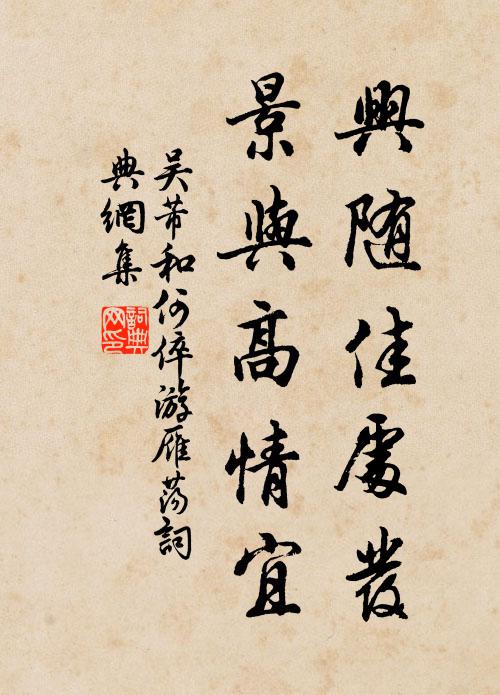 興随佳處發
景與高情宜
吴芾和何倅游雁荡詞
典網集
詞典
网印